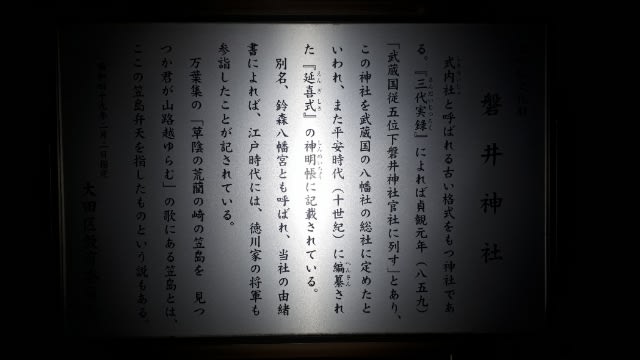 磐井神社
式内社と呼ばれる古い格式をもつ神社であ
る。『三代実録』によれば貞観元年（八五九）
「武蔵国従五位下磐井神社官社に列す」とあり、
この神社を武蔵国の八幡社の総社に定めたと
いわれ、また平安時代（十世紀）に編纂され
た『延喜式』の神明帳に記載されている。
別名、鈴森八幡宮とも呼ばれ、当社の由緒
書によれば、江戸時代には、徳川家の将軍も
参詣したことが記されている。
万葉集の「草陰の荒藺の崎の笠島を 見つ
つか君が山路越ゆらむ」の歌にある笠島とは、
ここの笠島弁天を指したものという説もある。
昭和四十九年二月二日指定
大田区教育委員会